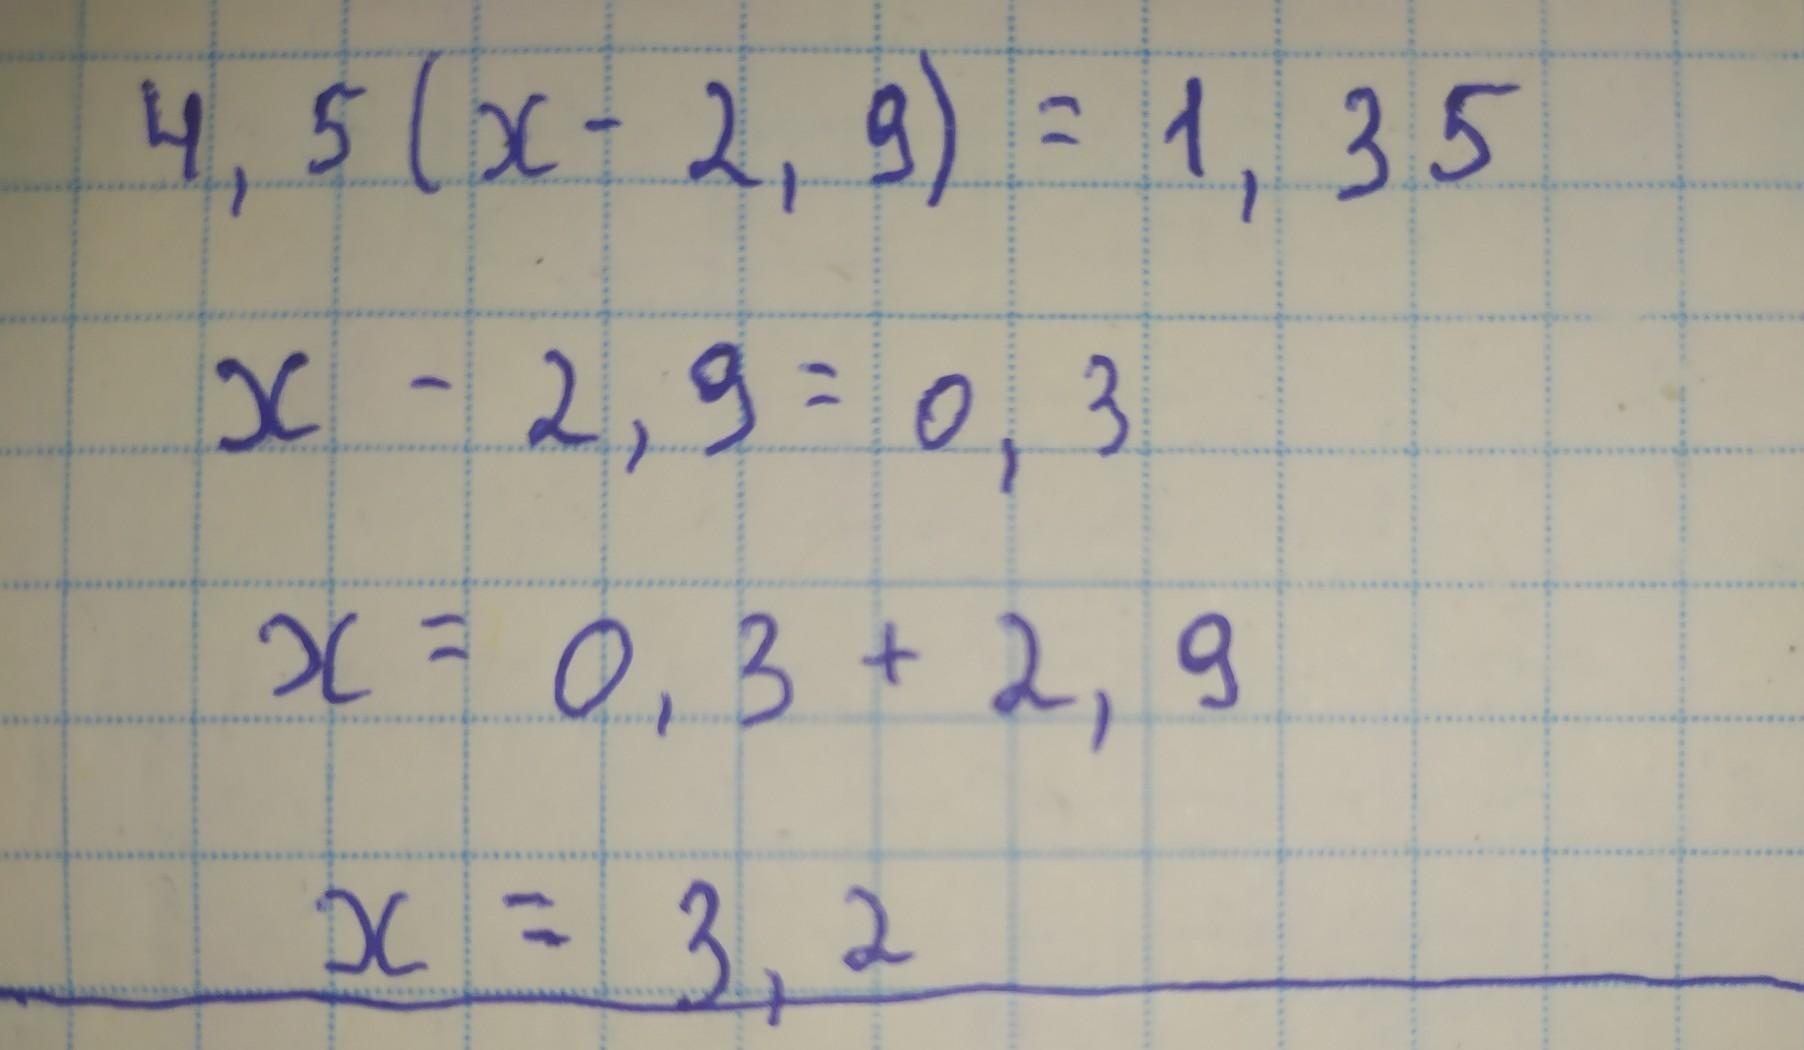 4,5(x - 2,9) = 1,35
x - 2,9 = 0,3
x = 0,3 + 2,9
x = 3,2